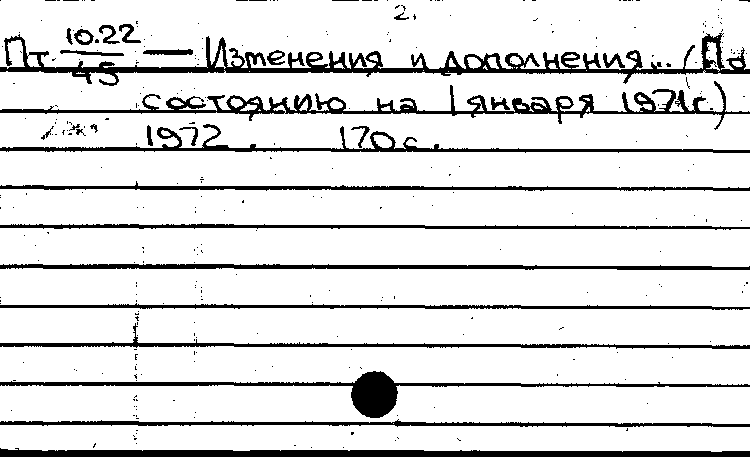 2.
Пт 10.22/45 — Изменения и дополнения... (По
состоянию на 1 января 1971г.)
1972. 170с.